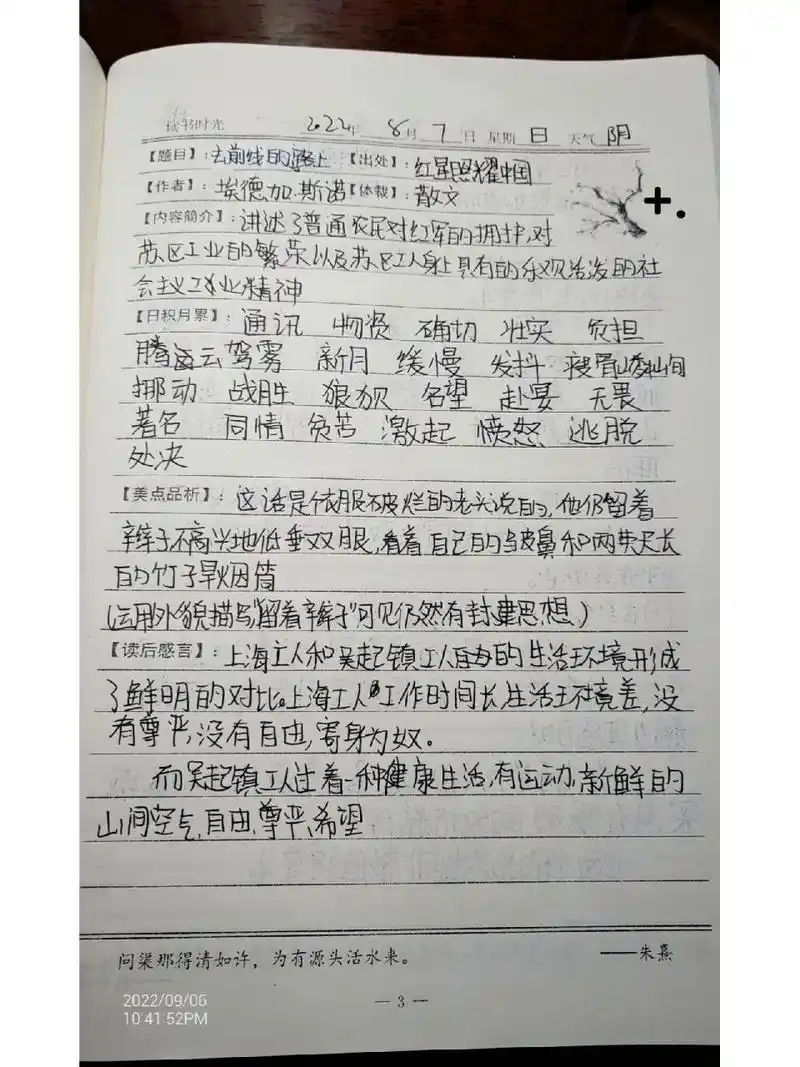 读书时光 2022年 8月 7日 星期 日 天气 阴
【题目】:去前线的路上 【出处】:红星照耀中国
【作者】:埃德加.斯诺【体裁】:散文
【内容简介】:讲述了普通农民对红军的拥护,对
苏区工业的繁荣以及苏区工人身上具有的乐观活泼的社
会主义工业精神
【日积月累】:通讯 物资 确切 壮实 负担
腾云驾雾 新月 缓慢 发抖 瘦骨
挪动 战胜 狼狈 名望 赴宴 无畏
著名 同情 负苦 激起 愤怒 逃脱
处决
【美点品析】:这话是个衣服破烂的老头说的,他仍留着
辫子不高兴地低垂双眼,看着自己的皱鼻和两英尺长
的竹子旱烟筒
(运用外貌描写"留着辫子"可见仍然有封建思想.)
【读后感言】:上海工人和吴起镇工人的生活环境形成
了鲜明的对比。上海工人工作时间长,生活环境差,没
有尊严,没有自由,寄身为奴.
而吴起镇工人过着一种健康生活,有运动,新鲜的
山间空气,自由,尊严,希望
问渠那得清如许,为有源头活水来。 ——朱熹
— 3 —
2022/09/06
10:41:52PM
+.